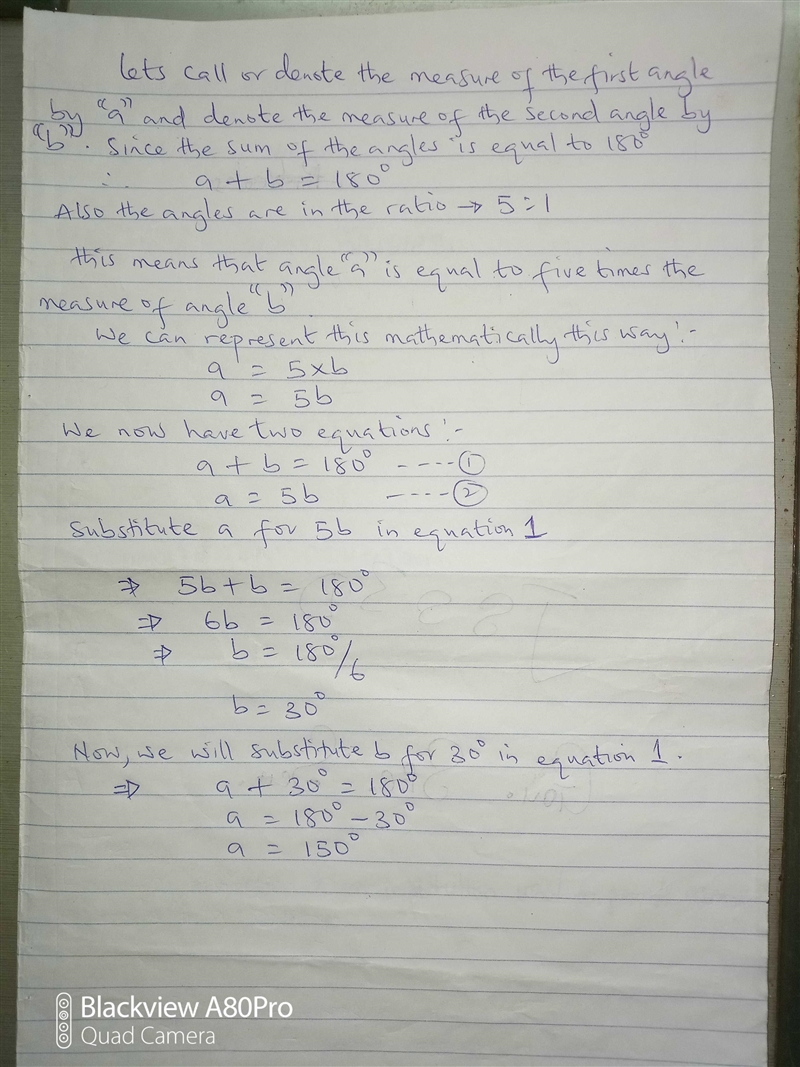 Lets call or denote the measure of the first angle
by "a" and denote the measure of the second angle by
"b". Since the sum of the angles is equal to 180°
∴ a + b = 180°
Also the angles are in the ratio → 5:1
this means that angle "a" is equal to five times the
measure of angle "b".
We can represent this mathematically this way:-
a = 5×b
a = 5b
We now have two equations:-
a + b = 180° ----①
a = 5b ----②
Substitute a for 5b in equation 1
⇒ 5b + b = 180°
⇒ 6b = 180°
⇒ b = 180°/6
b = 30°
Now, we will substitute b for 30° in equation 1.
⇒ a + 30° = 180°
a = 180° - 30°
a = 150°
Blackview A80Pro
Quad Camera